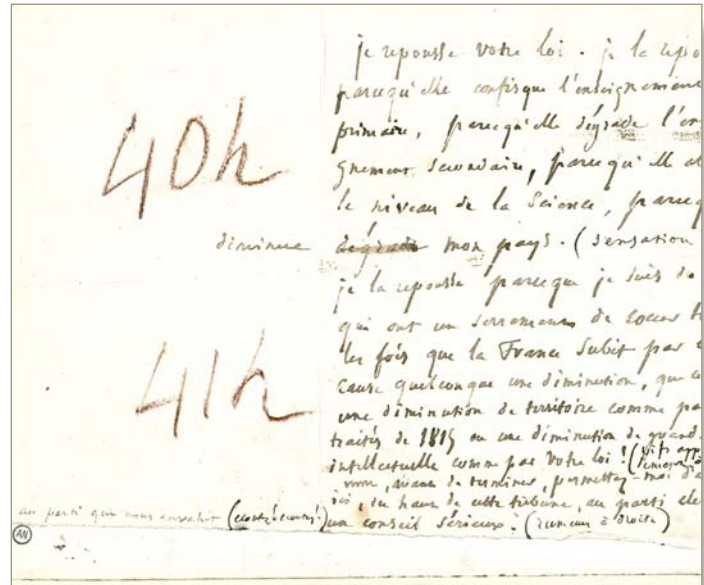 je repousse votre loi. je la repo
parcequ'elle confisque l'enseignement
primaire, parcequ'elle dégrade l'en
gnement secondaire, parcequ'elle ab
le niveau de la Science, parceq
diminue dégrade mon pays. (sensation
40h
je la repousse parceque je suis de
qui ont un serrement de coeur t
les fois que la France subit par
cause quelconque une diminution, que ce
une diminution de territoire comme pa
41h
traités de 1815 ou une diminution de grand
intellectuelle comme par votre loi! (vifs app
avant de terminer, permettez-moi d'a
ici, du haut de cette tribune, au parti cle
au parti qui nous envahit (écoutez! écoutez!) un conseil sérieux. (rumeur à droite)
AN